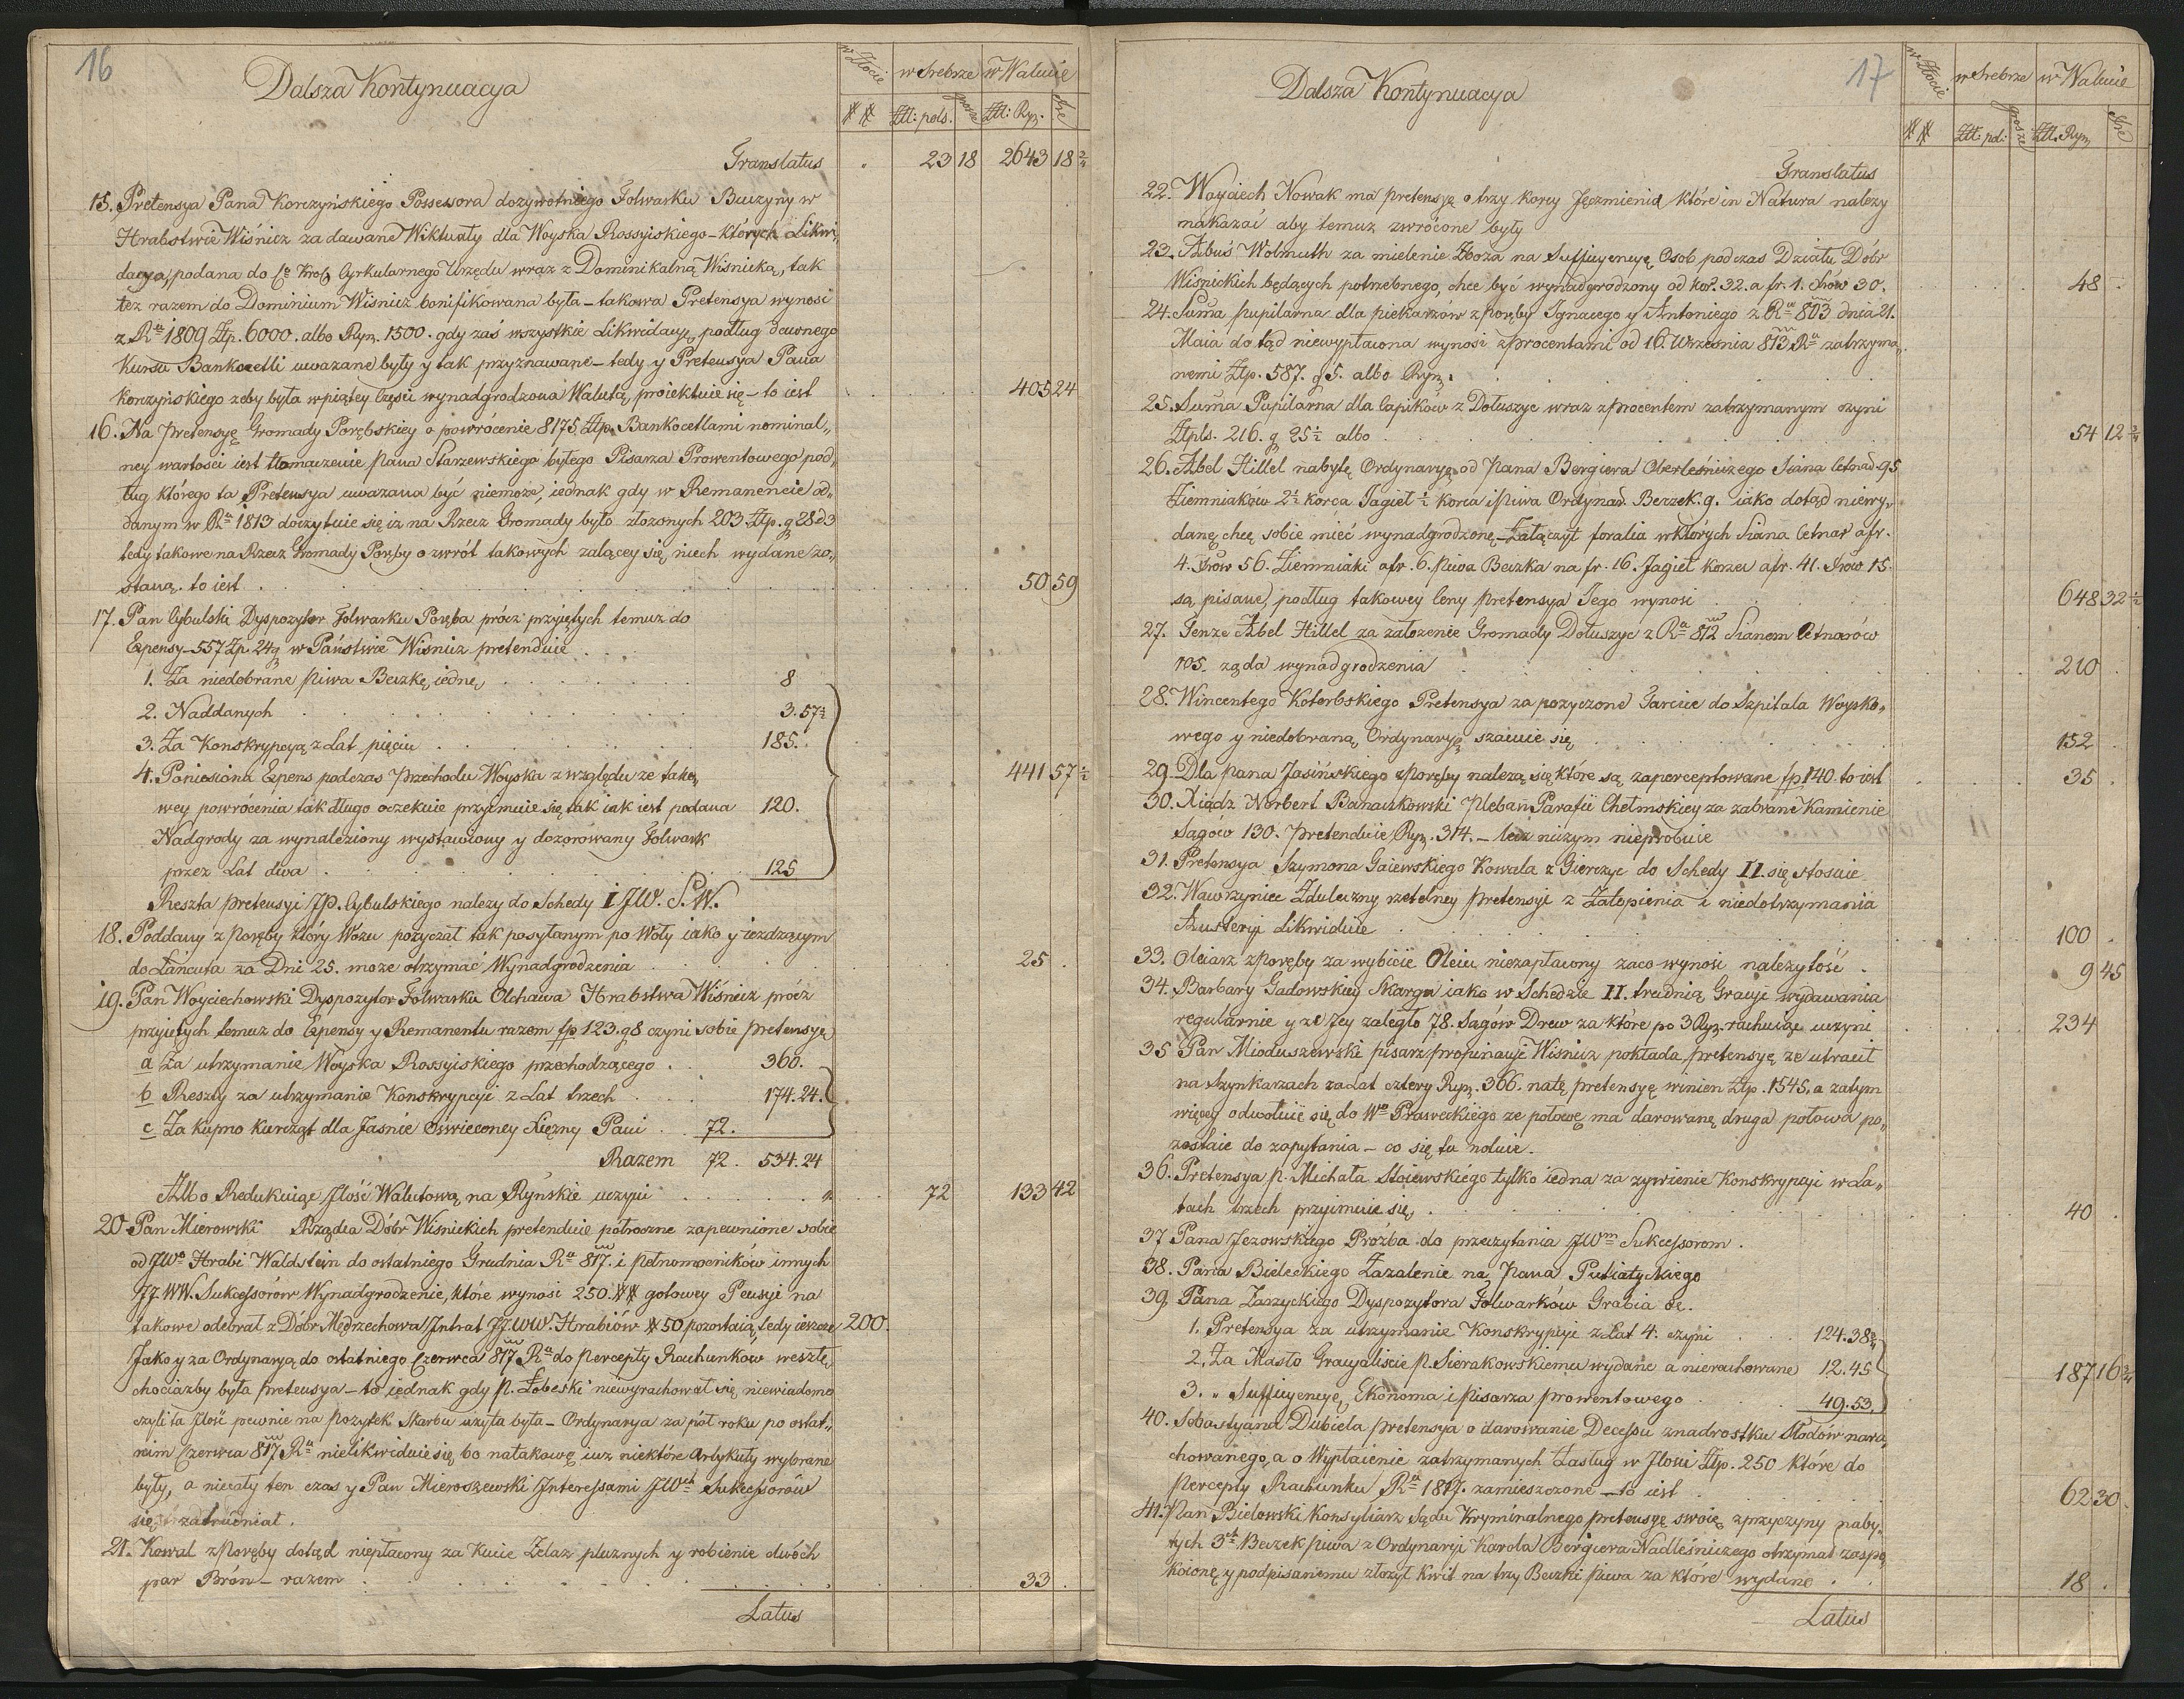 16
Dalsza Kontynuacya
w Złocie w Srebrze w Walucie
## Ztt: pols. grosze Ztt: Ryn. Xre
Translatus . 23 18 2643 18 3/4
15. Pretensya Pana Korczyńskiego Possessora dozywotniego Folwarku Buczyny w
Hrabstwie Wiśnicz za dawane Wiktuały dla Woyska Rossyiskiego – których Likwi„
dacya, podana do Cyrkularnego Urzędu wraz z Dominikalną Wiśnicką, tak
też razem do Dominium Wiśnicz bonifikowana była – takowa Pretensya wynosi
z Ru 1809 Ztp. 6000. albo Ryn. 1500. gdy zaś wszystkie Likwidacye podług dawnego
Kursu Bankocetli uwazane były y tak przyznawane – tedy y Pretensya Pana
Korczyńskiego zeby była w piątey Części wynadgrodzona Walutą, proiektuie się – to iest 405 24
16. Na Pretensyę Gromady Porębskiey o powrócenie 8175 Ztp. Bankocetlami nominal„
ney wartosci iest tłomaczenie Pana Starzewskiego byłego Pisarza Prowentowego pod„
ług którego ta Pretensya uwazana być niemoże, iednak gdy w Remanencie od„
danym w Ru 1813 doczytuie się iz na Rzecz Gromady było złozonych 203 Ztp. g 28 d3
tedy takowe na Rzecz Gromady Poręby o zwrót takowych zalącey się, niech wydane zo„
staną. to iest . 50 59
17. Pan Cybulski Dyspozytor Folwarku Poręba prócz przyiętych temuz do
Expensy – 557 Zp. 24 g w Państwie Wisnicz pretenduie
1. Za niedobrane piwa Beczkę iednę 8
2. Naddanych 3. 57 1/2
3. Za Konskrypcyą z Lat pięciu 185.
4. Poniesiona Expens podczas Przechodu Woyska z względu ze tako„ 441 57 1/2
wey powrócenia tak długo oczekuie przyimuie się tak iak iest podana 120.
Nadgrody za wynaleziony wystawiony y dozorowany Folwark
przez Lat dwa 125
Reszta pretensyi JP. Cybulskiego nalezy do Schedy I JW. S.W.
18. Poddany z Poręby który Wozu pozyczał tak posyłanym po Woły iako y iezdzącym
do Łańcuta za Dni 25. moze otrzymać Wynadgrodzenia 25 .
19. Pan Woyciechowski Dyspozytor Folwarku Olchawa Hrabstwa Wiśnicz prócz
przyiętych temuz do Expensy y Remanentu razem fp 123. g 8 czyni sobie pretensyę
a Za utrzymanie Woyska Rossyiskiego przechodzącego . 360.
b Reszty za utrzymanie Konskrypcyi z Lat trzech 174. 24.
c Za kupno kurcząt dla Jaśnie Oswieconey Xięzny Pani . . 72.
Razem 72. 534. 24
Albo Redukuiąc Jlość Walutową na Ryńskie uczyni 72 133 42
20 Pan Mierowski Rządca Dóbr Wisnickich pretenduie półroczne zapewnione sobie
od JWo Hrabi Waldstein do ostatniego Grudnia Ru 817. i pełnomocników innych
JJ. WW. Sukcessorów Wynadgrodzenie, które wynosi 250. ## gotowey Pensyi na
takowe odebrał z Dóbr Mędrzechowa Jntrat JJ WW. Hrabiów # 50 pozostaią, tedy ieszcze 200.
Jako y za Ordynaryą do ostatniego Czerwca 817 Ru do percepty Rachunkow weszłą
chociazby była pretensya – to iednak gdy P. Łobeski niewyrachował się, niewiadomo
czyli ta Jlość pewnie na pozytek Skarbu uzyta była – Ordynarya za pół roku po ostat„
nim Czerwca 817 Ru nielikwiduie się, bo na takowę iuz niektóre Artykuły wybrane
były, a niecały ten czas y Pan Mieroszewski Jnteressami JWch Sukcessorów
się zatrudniał.
21. Kowal z Poręby dotąd niepłacony za Kucie Zelaz pluznych y robienie dwóch
par Brón – razem 33 .
Latus
17
Dalsza Kontynuacya
w Złocie w Srebrze w Walucie
## Ztt: pol: grosze Ztt. Ryn Xre
Translatus
22. Woyciech Nowak ma pretensyę o trzy korcy Jęczmienia które in Natura nalezy
nakazać aby temuz zwrócone były
23. Abuś Wolmuth za mielenie Zboża na Sufficyencyę Osob podczas Działu Dóbr
Wiśnickich będących potrzebnego, chce być wynadgrodzony od kor. 32. a fr. 1. Xrów 30. 48
24. Suma pupilarna dla piekarzów z Poręby Jgnacego y Antoniego z Ru 803 dnia 21.
Maia do tąd niewypłacona wynosi z procentami od 16. Września 813 Ru zatrzyma„
nemi Ztp. 587. g 5. albo Ryn.
25. Suma Pupilarna dla Capików z Dołuszyc wraz z procentem zatrzymanym czyni
Ztpls. 216. g 25 1/2 albo 54 12 3/4
26. Abel Hillel nabytę Ordynaryę od Pana Bergiera Oberleśniczego Siana Cetnar. 95
Ziemniaków 2 1/2 korca Jagieł 1/2 korca i Piwa Ordynar. Beczek. 9. iako dotąd niewy„
danę, chce sobie mieć wynadgrodzonę – Załączył foralia w których Siana Cetnar a fr.
4. Xrów 56. Ziemniaki a fr. 6. Piwa Beczka na fr. 16. Jagieł korzec a fr. 41. Xrow 15.
są, pisane, podług takowey Ceny pretensya Jego wynosi 648 32 1/2
27. Tenze Abel Hillel za załozenie Gromady Dołuszyc z Ru 812 Sianem Cetnarów
105. ząda wynadgrodzenia 210
28. Wincentego Kotorbskiego Pretensya za pozyczone Tarcice do Szpitala Woysko„
wego y niedobraną Ordynaryą szacuie się 152
29. Dla Pana Jasińskiego z Poręby nalezą się które są zaperceptowane fp 140. to iest 35
30. Xiądz Norbert Banaczkowski Pleban Parafii Chełmskiey za zabrane Kamienie
Sągów 130. pretenduie Ryn. 314. – lecz niczym nieprobuie
31. Pretensya Szymona Gaiewskiego Kowala z Gierczyc do Schedy II. się stosuie
32. Wawrzyniec Zduleczny rzetelney pretensyi z Zalepienia i niedotrzymania
Austeryi Likwiduie 100 .
33. Oleiarz z Poręby za wybicie Oleiu niezapłacony zaco wynosi nalezytość . 9 45
34. Barbary Gadowskiey Skarga iako w Schedzie II. trudnią Gracyi wydawania
regularnie y ze Jey zaległo 78. Sągów Drew za które po 3 Ryn. rachuiąc uczyni 234
35 Pan Mioduszewski pisarz propinacyi Wiśnicz pokłada pretensyę ze utracił
na Szynkarzach za Lat cztery Ryn. 366. natę pretensyę winien Ztp. 1545, a zatym
więcey odwołuie się do Wo Praweckiego ze połowę ma darowanę druga połowa po„
zostaie do zapytania – co się tu notuie.
36. Pretensya P. Michała Stoiewskiego tylko iedna za zywienie Konskrypcyi w La„
tach trzech przyimuie się 40 .
37 Pana Jezowskiego Proźba do przeczytania JWm Sukcessorom .
38. Pana Bieleckiego Zazalenie na Pana Putiatyckiego
39 Pana Zarzyckiego Dyspozytora Folwarków Grabia &c.
1. Pretensya za utrzymanie Konskrypcyi z Lat 4. czyni 124. 38 3/4
2. Za Masło Gracyaliscie P. Sierakowskiemu wydane a nierachowane 12. 45 187 16 3/4
3. „ Sufficyencyę, Ekonoma i Pisarza prowentowego 49. 53.
40. Sebastyana Dubiela pretensya o darowanie Decessu z nadrostku Słodów nara„
chowanego, a o Wypłacenie zatrzymanych Zasług w Jlosci Ztp. 250 które do
Percepty Rachunku Ru 1817. zamieszczone – to iest 62 30
41. Pan Bielowski Konsyliarz Sądu Kryminalnego pretensyę swoię z przyczyny naby„
tych 3ch Beczek piwa z Ordynaryi Karola Bergiera Nadleśniczego otrzymał zaspo„
koionę y podpisanemu złozył Kwit na trzy Beczki piwa za które wydano 18 .
Latus